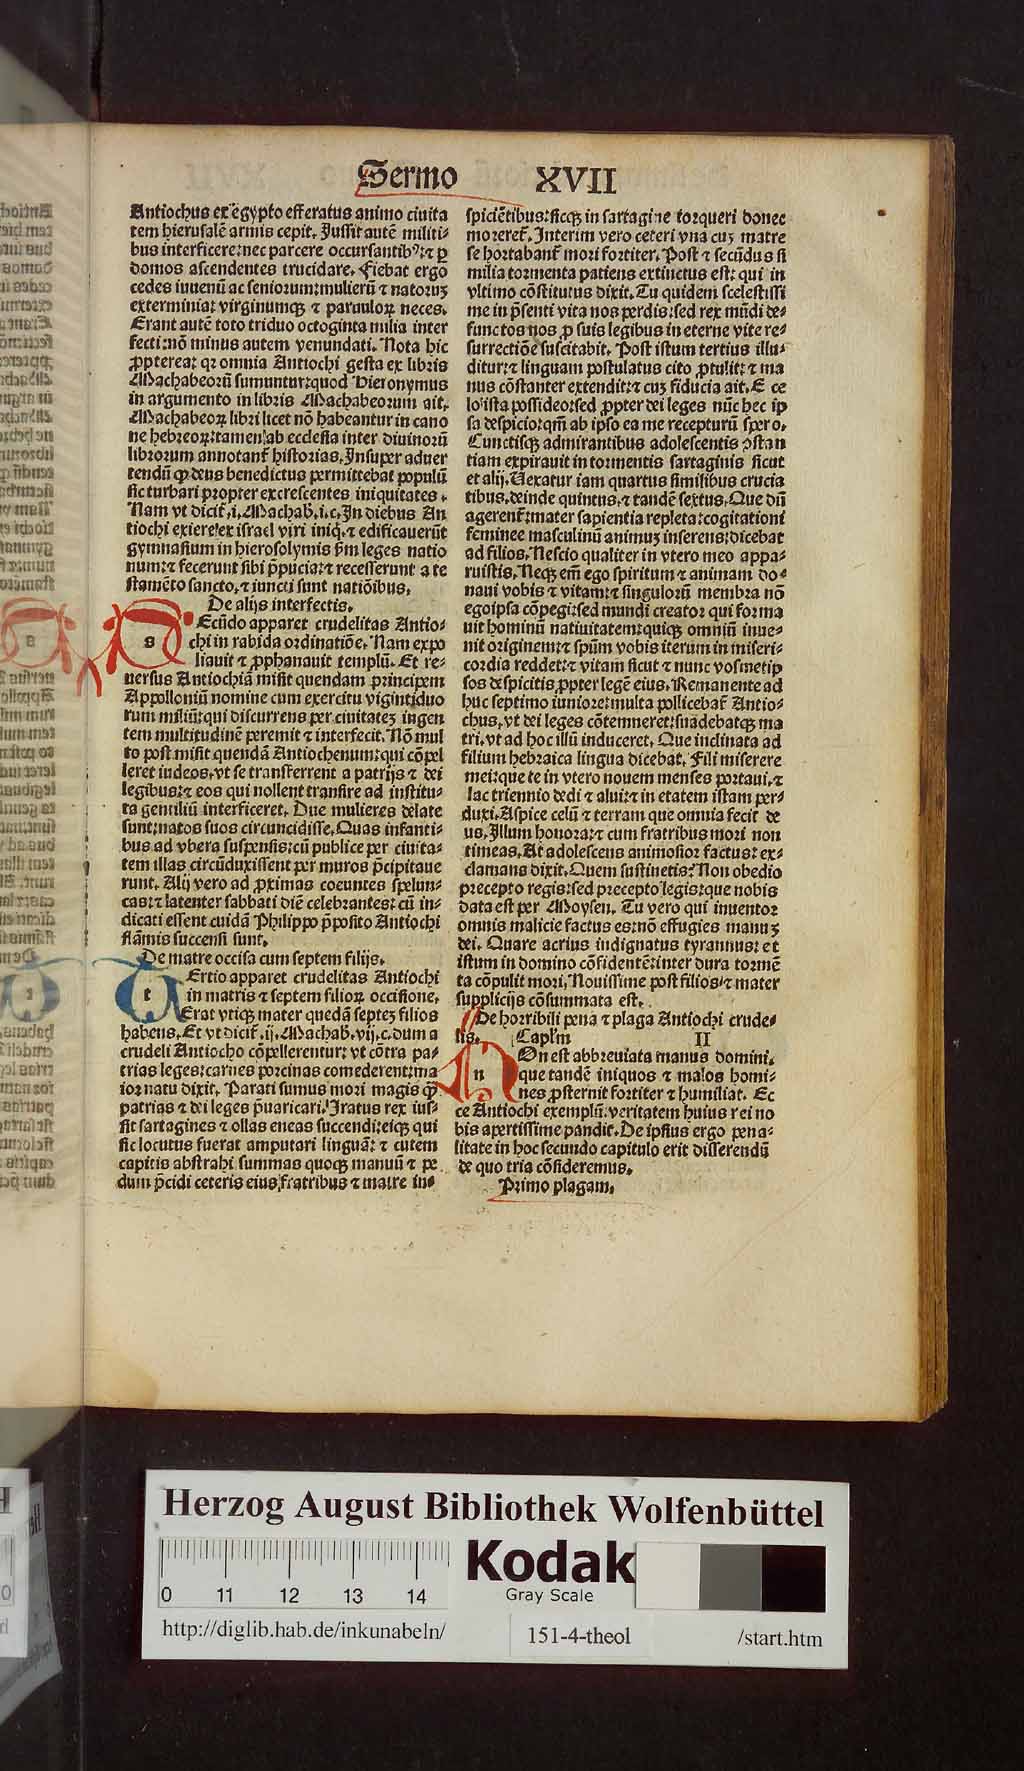 Sermo XVII
Antiochus ex egypto efferatus animo ciuita
tem hierusalē armis cepit. Jussit autē militi-
bus interficere: nec parcere occursantibꝰ: ⁊ ꝑ
domos ascendentes trucidare. Fiebat ergo
cedes iuuenū ac seniorum: mulierū ⁊ natoruꝫ
exterminia: virginumqꝫ ⁊ paruuloꝝ neces.
Erant autē toto triduo octoginta milia inter
fecti: nō minus autem venundati. Nota hic
ꝓpterea: qꝛ omnia Antiochi gesta ex libris
Machabeorū sumuntur: quod Hieronymus
in argumento in libris Machabeorum ait.
Machabeoꝝ libri licet nō habeantur in cano
ne hebreoꝝ: tamen ab ecclesia inter diuinorū
librorum annotant̄ historias. Insuper aduer
tendū ꝙ deus benedictus permittebat populū
sic turbari propter excrescentes iniquitates.
Nam vt dicit̄ .i. Machab. i. c. In diebus An
tiochi exiere ex israel viri iniq. ⁊ edificauerūt
gymnasium in hierosolymis ẜm leges natio
num: ⁊ fecerunt sibi p̄pucia: ⁊ recesserunt a te
stamēto sancto. ⁊ iuncti sunt natiōibus.
De alijs interfectis.
s Ecūdo apparet crudelitas Antio-
chi in rabida ordinatiōe. Nam expo
liauit ⁊ ꝓphanauit templū. Et re-
uersus Antiochiā misit quendam principem
Appolloniū nomine cum exercitu vigintiduo
rum miliū: qui discurrens per ciuitateꝫ ingen
tem multitudinē peremit ⁊ interfecit. Nō mul
to post misit quendā Antiochenum: qui cōpel
leret iudeos. vt se transferrent a patrijs ⁊ dei
legibus: ⁊ eos qui nollent transire ad institu-
ta gentiliū interficeret. Due mulieres delate
sunt: natos suos circuncidisse. Quas infanti-
bus ad vbera suspensis: cū publice per ciuita-
tem illas circūduxissent per muros p̄cipitaue
runt. Alij vero ad ꝓximas coeuntes spelun-
cas: ⁊ latenter sabbati diē celebrantes: cū in-
dicati essent cuidā Philippo p̄posito Antiochi
flāmis succensi sunt.
De matre occisa cum septem filijs.
t Ertio apparet crudelitas Antiochi
in matris ⁊ septem filioꝝ occisione.
Erat vtiqꝫ mater quedā septeꝫ filios
habens. Et vt dicit̄ .ij. Machab. vij. c. dum a
crudeli Antiocho cōpellerentur: vt cōtra pa-
trias leges: carnes porcinas comederent: ma
ior natu dixit. Parati sumus mori magis ꝙ̄
patrias ⁊ dei leges p̄uaricari. Iratus rex ius-
sit sartagines ⁊ ollas eneas succendi: eiqꝫ qui
sic locutus fuerat amputari linguā: ⁊ cutem
capitis abstrahi summas quoqꝫ manuū ⁊ pe
dum p̄cidi ceteris eius fratribus ⁊ matre in-
spiciētibus: sicqꝫ in sartagine torqueri donec
moreret̄. Interim vero ceteri vna cuꝫ matre
se hortabant̄ mori fortiter. Post ⁊ secūdus si
milia tormenta patiens extinctus est: qui in
vltimo cōstitutus dixit. Tu quidem scelestissi
me in p̄senti vita nos perdis: sed rex mūdi de-
functos nos ꝓ suis legibus in eterne vite re-
surrectiōe suscitabit. Post istum tertius illu-
ditur: ⁊ linguam postulatus cito ꝓtulit: ⁊ ma
nus cōstanter extendit: ⁊ cuꝫ fiducia ait. E ce
lo ista possideo: sed ꝓpter dei leges nūc hec ip
sa despicio: qm̄ ab ipso ea me recepturū spero.
Cunctisqꝫ admirantibus adolescentis ꝯstan
tiam expirauit in tormentis sartaginis sicut
et alij. Uexatur iam quartus similibus crucia
tibus. deinde quintus. ⁊ tandē sextus. Que dū
agerent̄: mater sapientia repleta: cogitationi
feminee masculinū animuꝫ inserens: dicebat
ad filios. Nescio qualiter in vtero meo appa-
ruistis. Neqꝫ em̄ ego spiritum ⁊ animam do-
naui vobis ⁊ vitam: ⁊ singulorū membra nō
egoipsa cōpegi: sed mundi creator qui forma
uit hominū natiuitatem: quiqꝫ omniū inue-
nit originem: ⁊ spūm vobis iterum in miseri-
cordia reddet: ⁊ vitam sicut ⁊ nunc vosmetip
sos despicitis ꝓpter legē eius. Remanente ad
huc septimo iuniore: multa pollicebat̄ Antio-
chus. vt dei leges cōtemneret: suadebatqꝫ ma
tri. vt ad hoc illū induceret. Que inclinata ad
filium hebraica lingua dicebat. Fili miserere
mei: que te in vtero nouem menses portaui. ⁊
lac triennio dedi ⁊ alui: ⁊ in etatem istam per-
duxi. Aspice celū ⁊ terram que omnia fecit de
us. Illum honora: ⁊ cum fratribus mori non
timeas. At adolescens animosior factus: ex-
clamans dixit. Quem sustinetis? Non obedio
precepto regis: sed precepto legis: que nobis
data est per Moysen. Tu vero qui inuentor
omnis malicie factus es: nō effugies manuꝫ
dei. Quare acrius indignatus tyrannus: et
istum in domino cōfidentē: inter dura tormē
ta cōpulit mori. Nouissime post filios ⁊ mater
supplicijs cōsummata est.
De horribili pena ⁊ plaga Antiochi crude-
lis. Capl'm II
n On est abbreuiata manus domini.
que tandē iniquos ⁊ malos homi-
nes ꝓsternit fortiter ⁊ humiliat. Ec
ce Antiochi exemplū: veritatem huius rei no
bis apertissime pandit. De ipsius ergo pena-
litate in hoc secundo capitulo erit disserendū
de quo tria cōsideremus.
Primo plagam.
Herzog August Bibliothek Wolfenbüttel
0 11 12 13 14
Kodak
Gray Scale
http://diglib.hab.de/inkunabeln/ 151-4-theol /start.htm